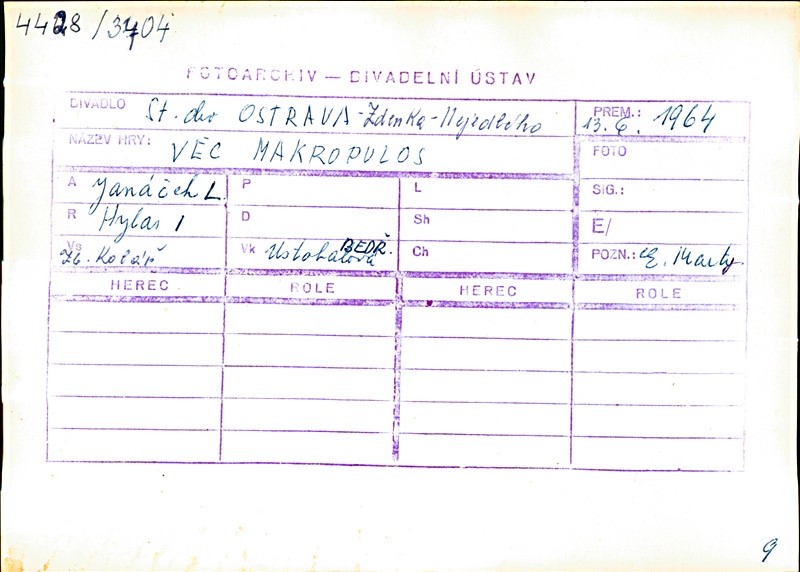 4428/3404
FOTOARCHIV — DIVADELNÍ ÚSTAV
DIVADLO St. div OSTRAVA - Zdeňka - Nejedlého
PREM.: 13. 6. 1964
NÁZEV HRY: VĚC MAKROPULOS
FOTO
A Janáček L.
P
L
SIG.:
R Hylas I
D
Sh
E/
Vs Zb. Kolář
Vk Ustohalová BEDŘ.
Ch
POZN.: E. Marty
HEREC ROLE HEREC ROLE
9